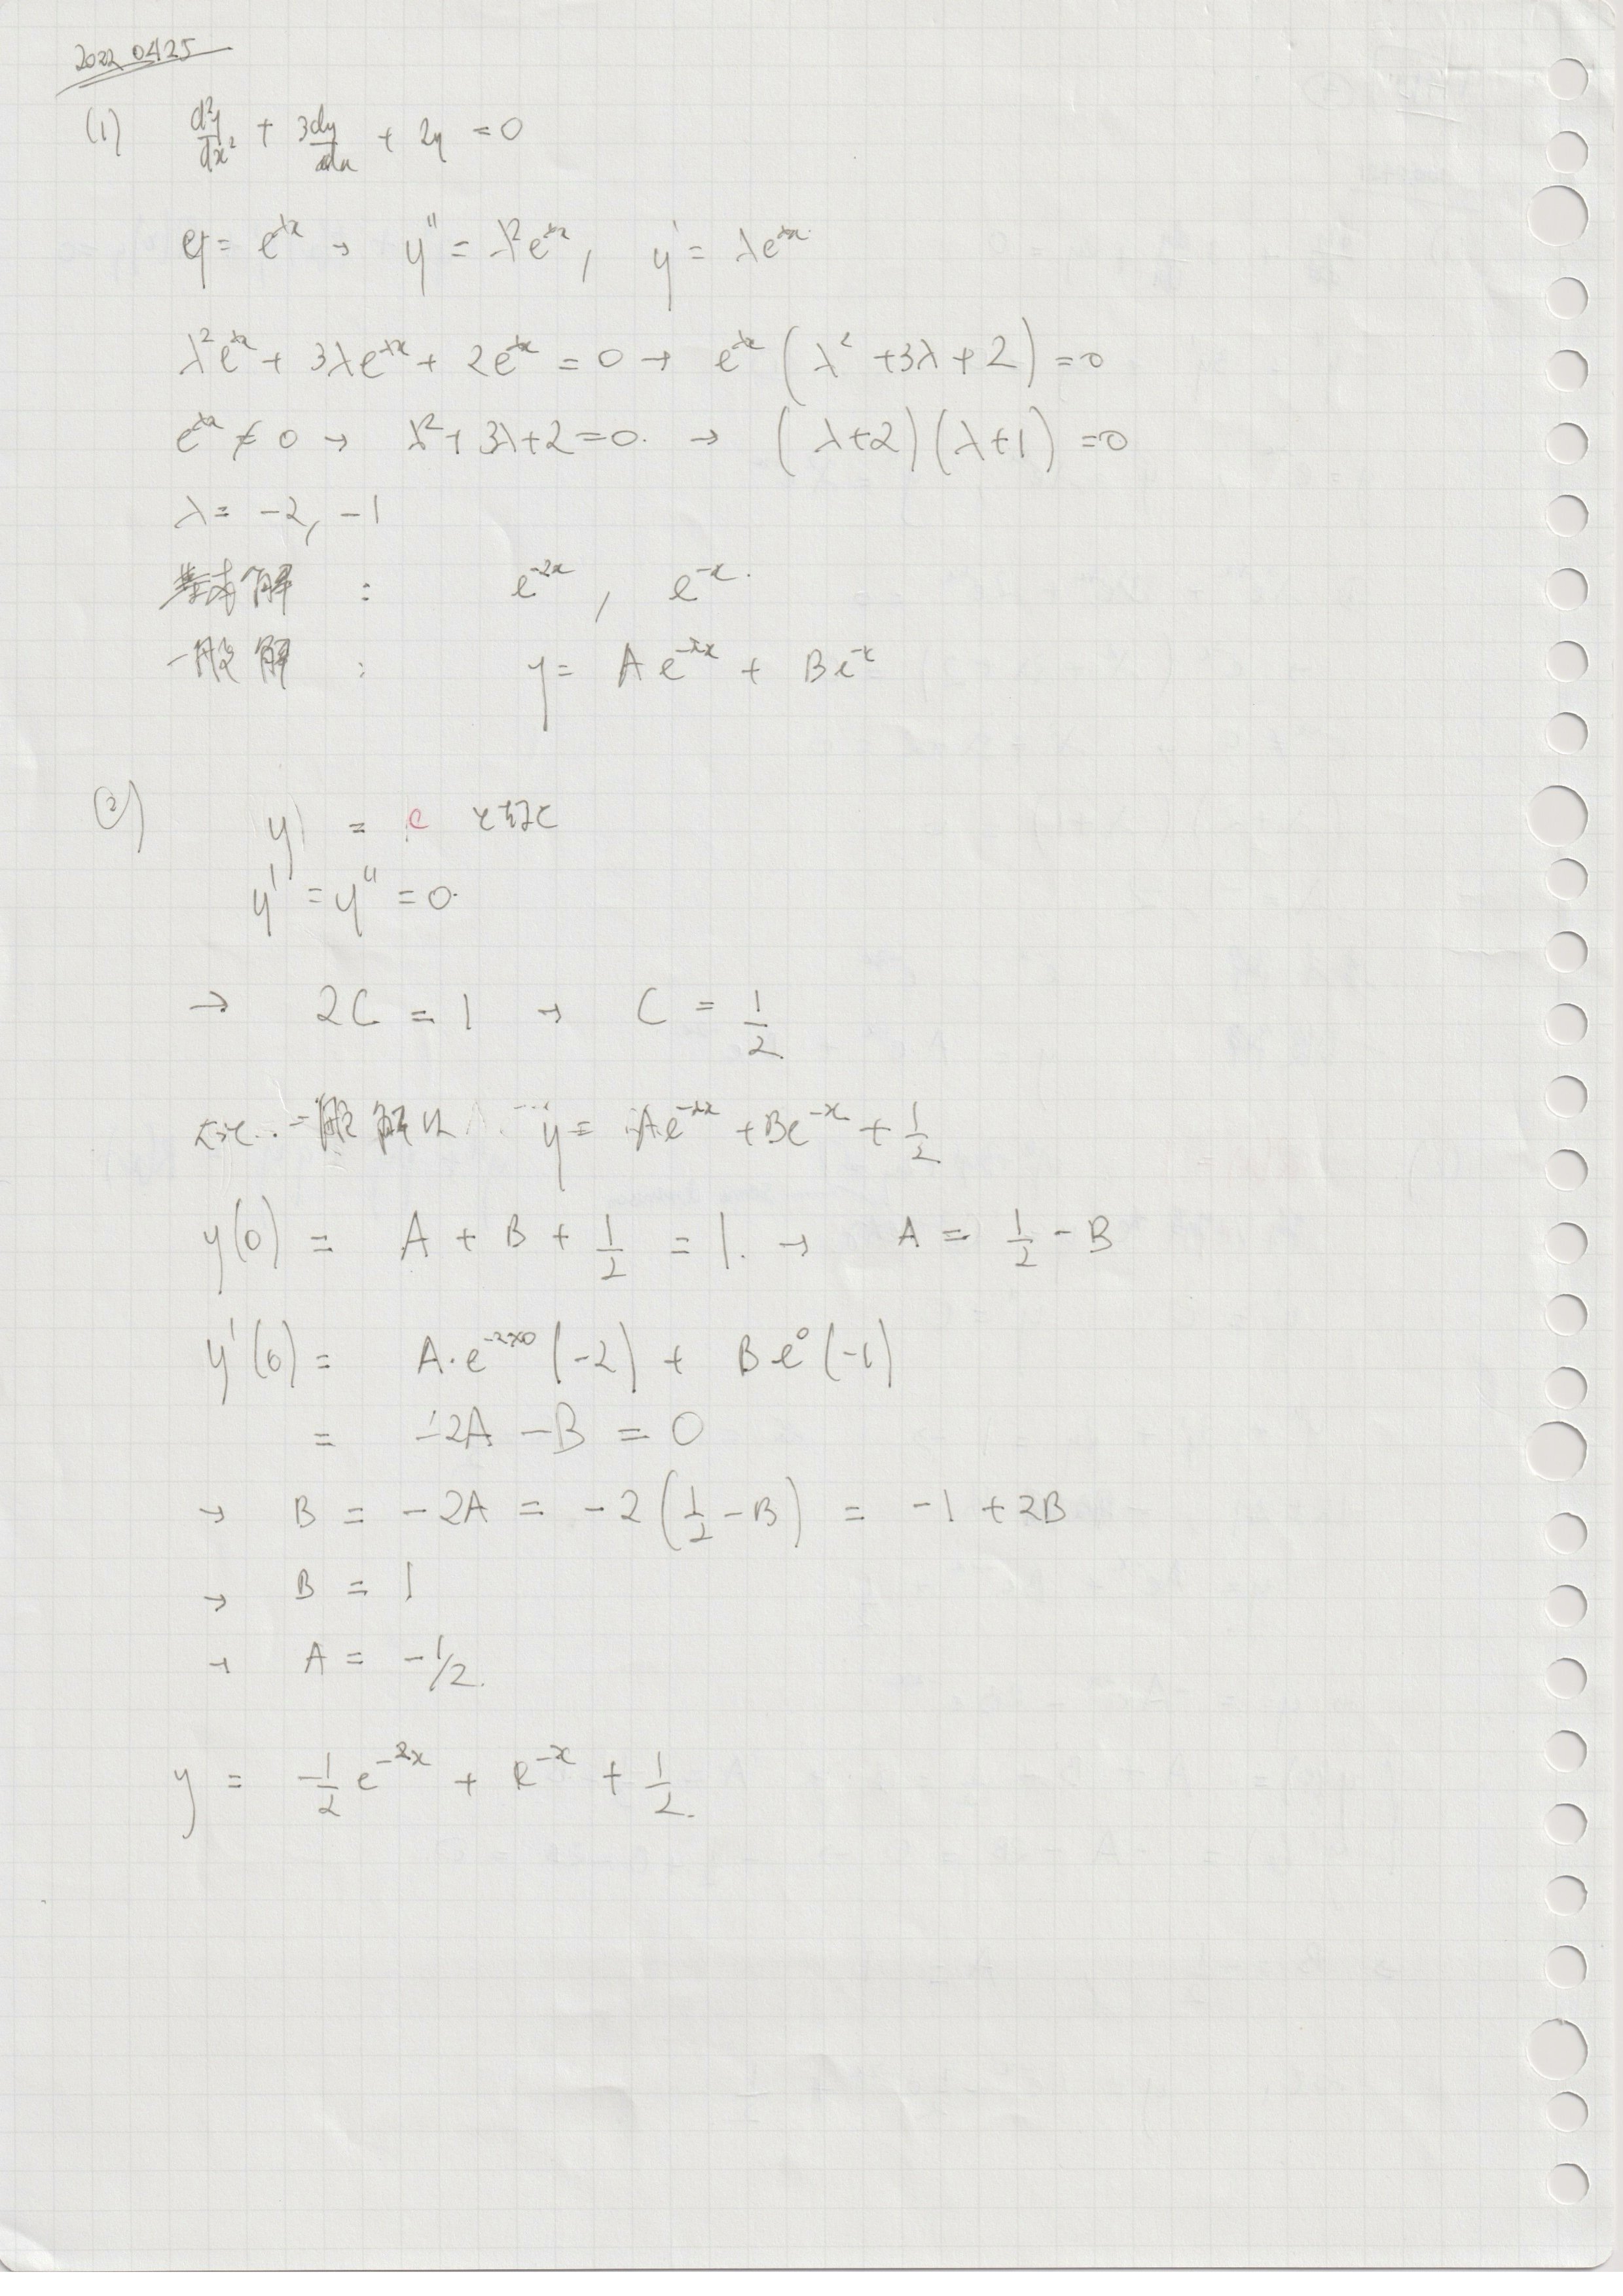 20220425
(1) d²y/dx² + 3dy/dx + 2y = 0
y = e^λx → y'' = λ²e^λx, y' = λe^λx
λ²e^λx + 3λe^λx + 2e^λx = 0 → e^λx (λ² + 3λ + 2) = 0
e^λx ≠ 0 → λ² + 3λ + 2 = 0. → (λ+2)(λ+1) = 0
λ = -2, -1
基本解 : e^-2x, e^-x.
一般解 : y = Ae^-2x + Be^-x
(2) y = c とすると
y' = y'' = 0.
→ 2C = 1 → C = 1/2
一般解は y = Ae^-2x + Be^-x + 1/2
y(0) = A + B + 1/2 = 1. → A = 1/2 - B
y'(0) = A·e^-2×0 (-2) + Be^0 (-1)
= -2A - B = 0
→ B = -2A = -2(1/2 - B) = -1 + 2B
→ B = 1
→ A = -1/2.
y = -1/2 e^-2x + e^-x + 1/2.